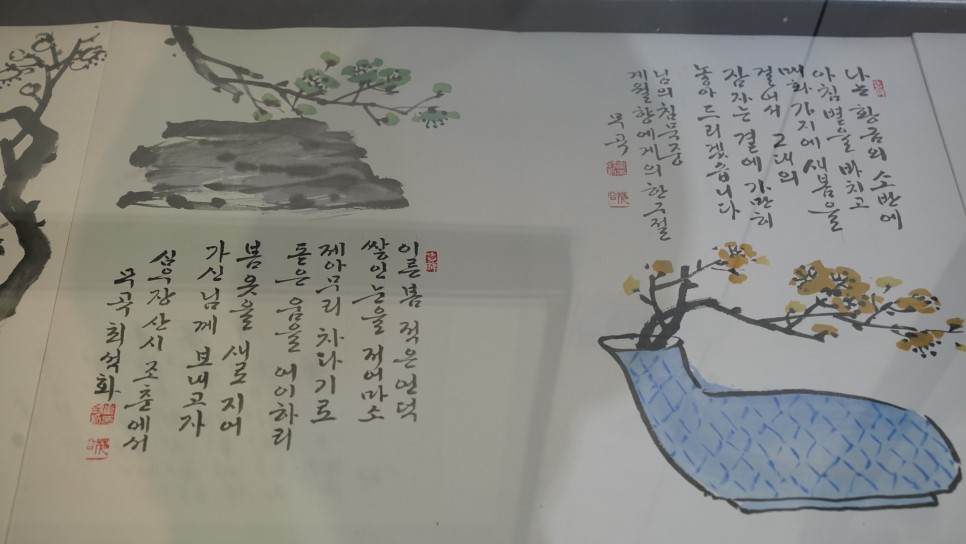 나는 황금의 소반에
아침 볕을 바치고
매화가지에 새봄을
걸어서 그대의
잠자는 곁에 가만히
놓아 드리겠습니다
님의 침묵중
계월향에게의 한구절
무곡
이른 봄 적은 언덕
쌓인 눈을 저어마소
제아무리 차다기로
돋은 움을 어이하리
봄 옷을 새로 지어
가신 님께 보내고자
심우장 산시 조춘에서
무곡 최석화